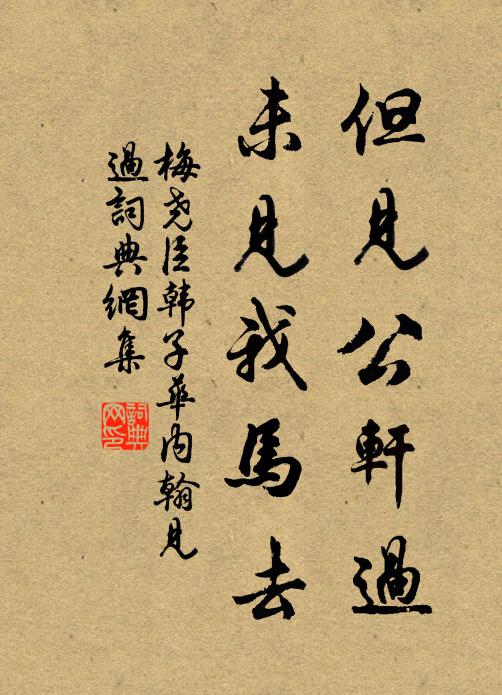 但見公軒過
未見我馬去
梅尧臣韩子華内翰見
過詞典網集
詞典
网印